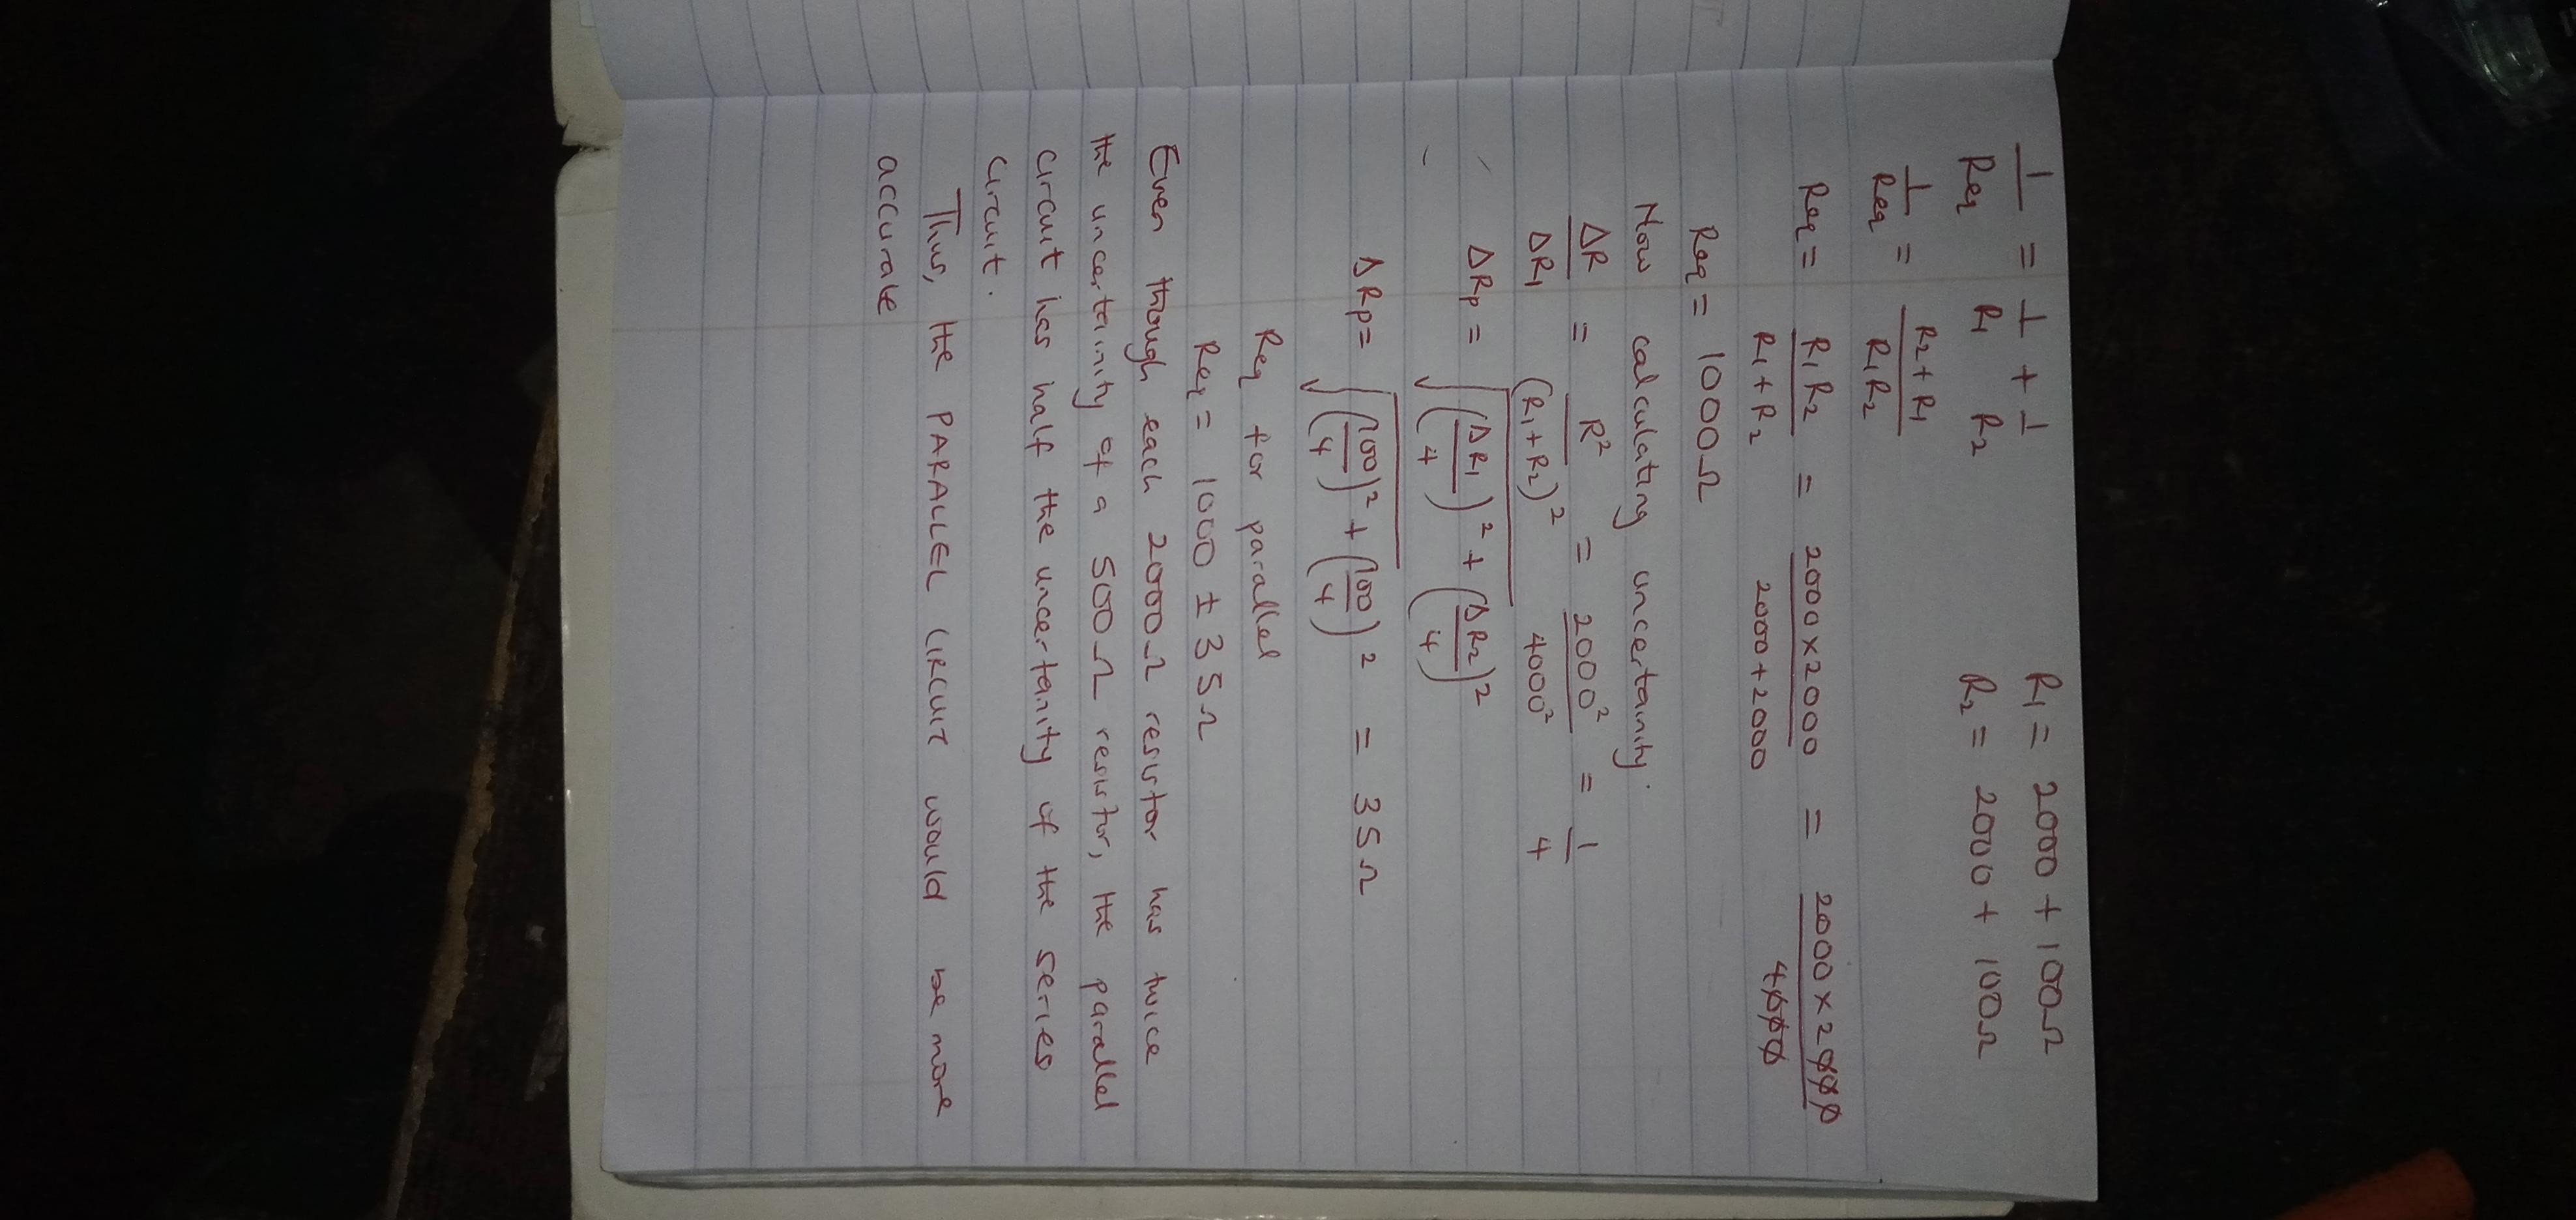 1/Req = 1/R1 + 1/R2 R1 = 2000 + 100Ω
R2 = 2000 + 100Ω
1/Req = (R2 + R1)/(R1R2)
Req = (R1R2)/(R1 + R2) = (2000×2000)/(2000+2000) = (2000×2000)/4000
Req = 1000Ω
Now calculating uncertainity.
ΔR/ΔR1 = R²/(R1+R2)² = 2000²/4000² = 1/4
ΔRp = √(ΔR1/4)² + (ΔR2/4)²
ΔRp = √(100/4)² + (100/4)² = 35Ω
Req for parallel
Req = 1000 ± 35Ω
Even though each 2000Ω resistor has twice
the uncertainity of a 500Ω resistor, the parallel
circuit has half the uncertanity of the series
circuit.
Thus, the PARALLEL CIRCUIT would be more
accurate